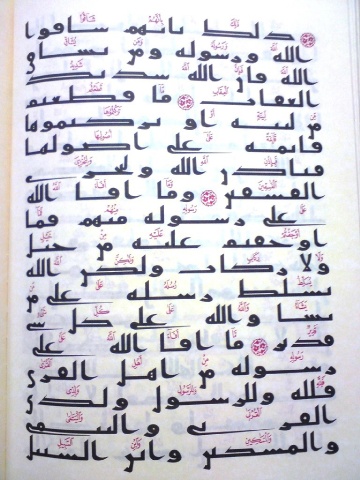 ذلك بانهم شاقوا
الله ورسوله ومن يشاق
الله فان الله شديد
العقاب ما قطعتم
من لينه او تركتموها
قايمه على اصولها
فباذن الله وليخزى
الفسقين وما افا الله
على رسوله منهم فما
اوجفتم عليه من خيل
ولا ركاب ولكن الله
يسلط رسله على من
يشا والله على كل شى
قدير ما افا الله على
رسوله من اهل القرى
فلله وللرسول ولذى
القربى واليتمى
والمسكين وابن السبيل